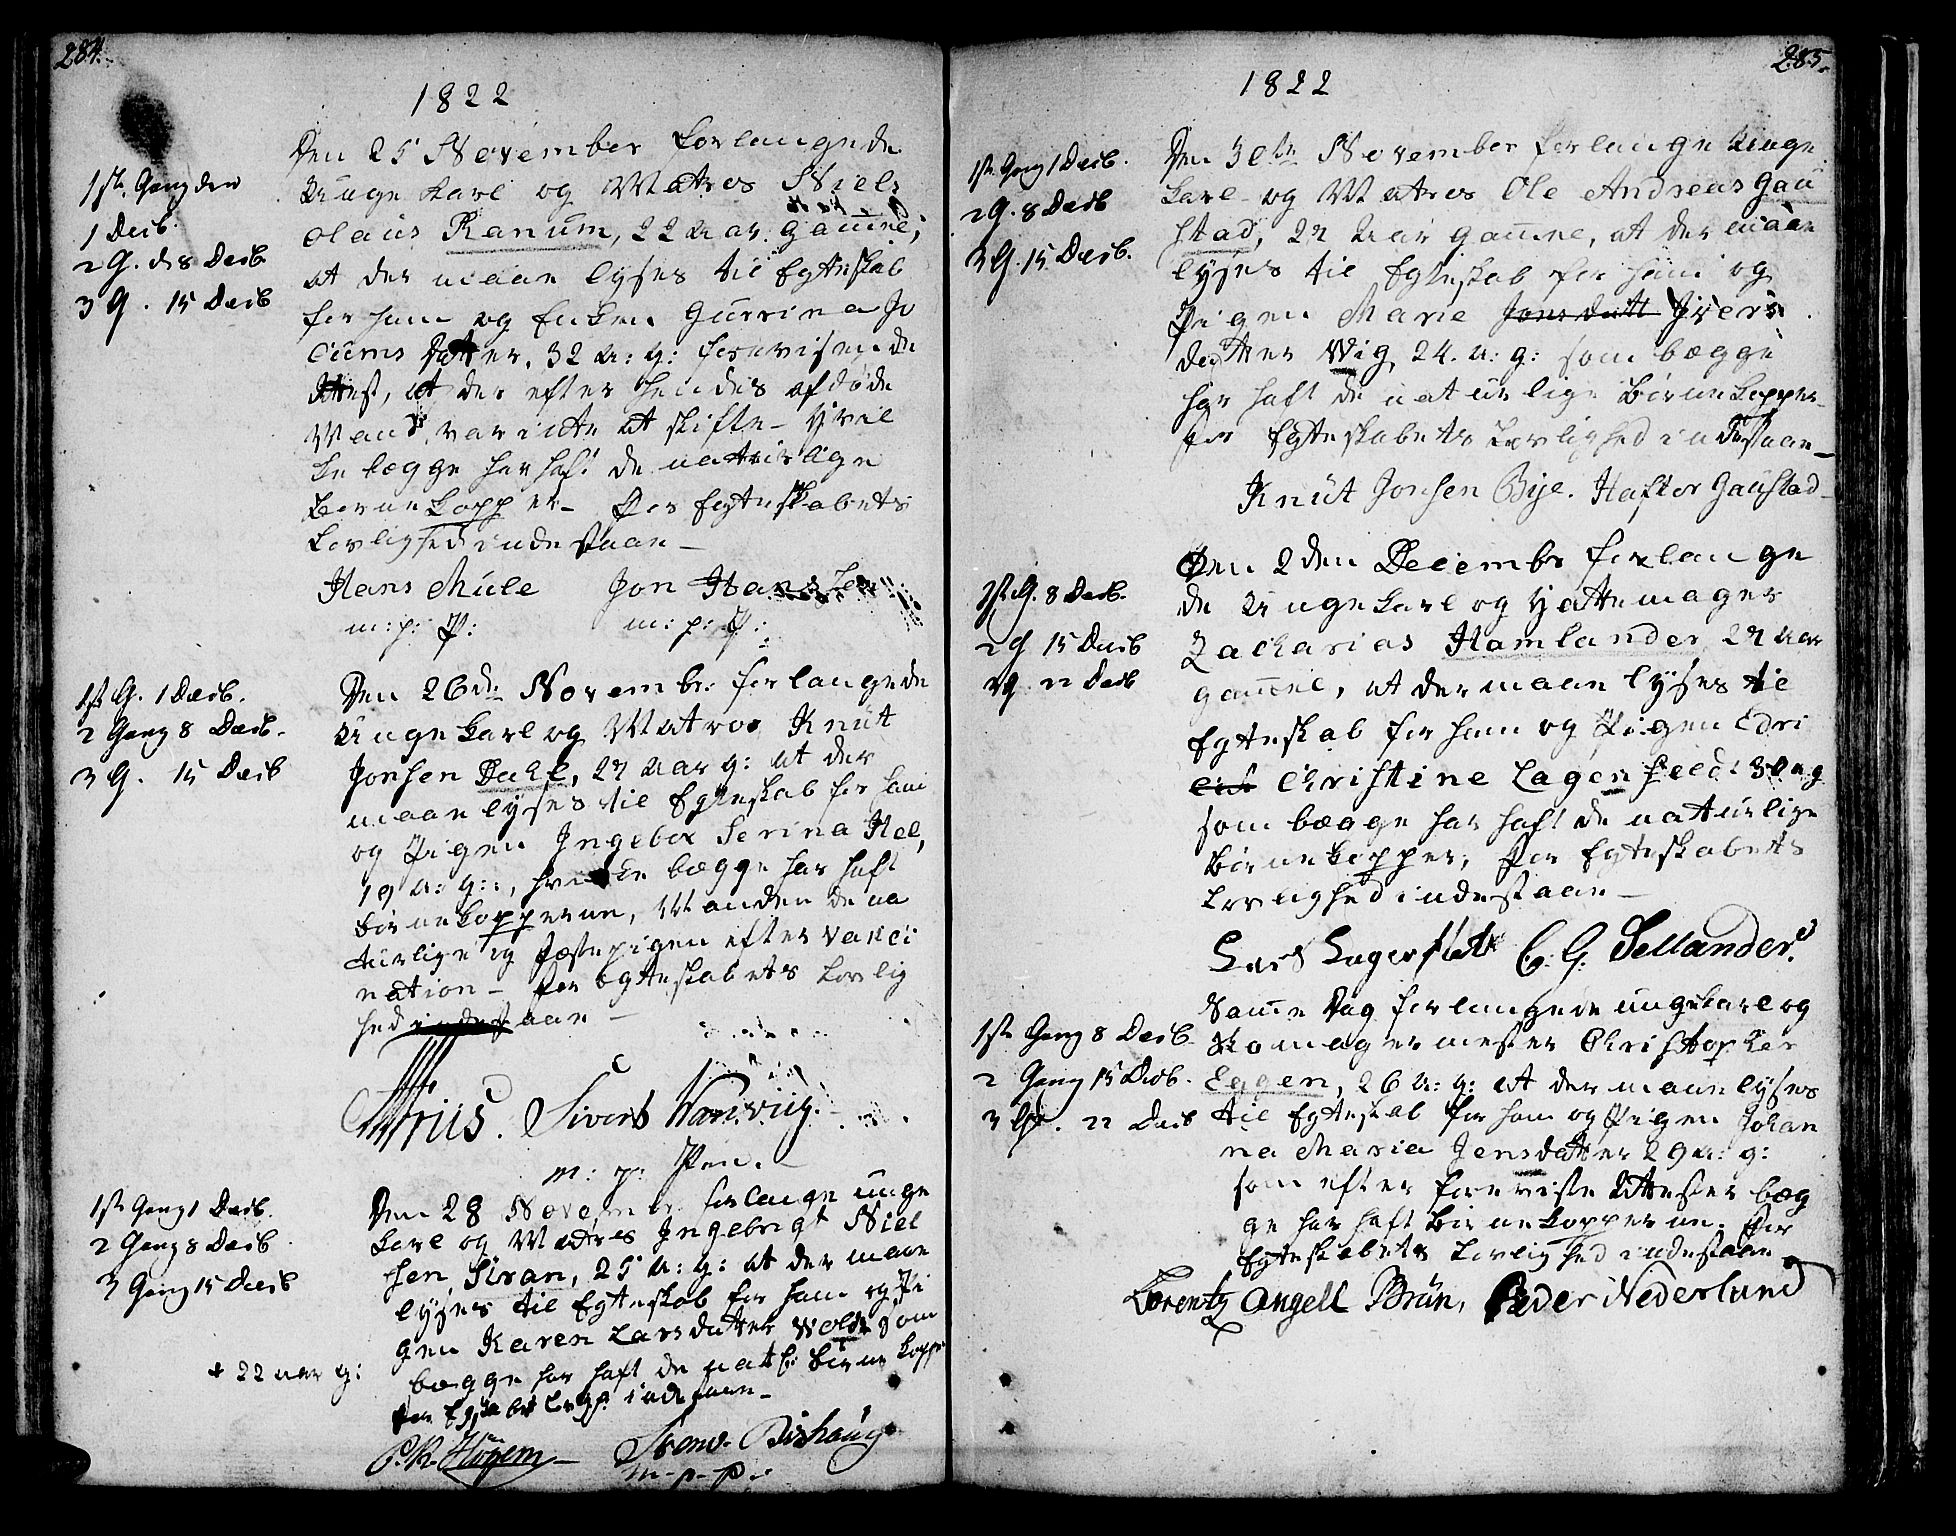 284.
1822
1ste Gang den
1 Decb.
2 G. d 8 Decb
3 G. 15 Decb
Den 25 November forlangede
Unge Karl og Matros Niels
Olaus Ranum, 22 Aar gam̄el,
at der maae lyses til Egteskab
for ham og Enken Gurrina Jo
cums Datter, 32 A: g: forevisende
Attest, at der efter hendes afdøde
Mand var intet at skifte - hvil
ke begge har haft de naturlige
Børnekopper - For Egteskabets
Lovlighed indestaae -
Hans Mule Jon Hans
m: p: P: m: p: P:
1ste G. 1 Decb.
2 Gang 8 Decb.
3 G. 15 Decb
Den 26de Novembr: forlangede
Unge Karl og Matros Knut
Jonsen Dahl, 27 Aar g: at der
maae lyses til Egteskab for ham
og Pigen Ingebor Serina Hol,
19 A: g:, hvilke begge har haft
Børnekopperne, Manden de na
turlige og Fæstepigen efter Vakci
nation - For Egteskabets Lovlig
hed indestaae -
Sivert
m: p: Pen.
1ste Gang 1 Decb.
2 Gang 8 Decb
3 Gang 15 Decb
Den 28 Novembr. forlange unge
Karl og Matros Ingebrigt Niel
sen Siran, 25 A: g: at der maae
lyses til Egteskab for ham og Pi
gen Karen Larsdatter Wold som
+ 22 Aar g:
begge har haft de natl: Børnekopper
For Egskabets Lovgh. indestaae -
P. R. Høyem Svend. Bishaug
m - p - P.
285.
1822
1ste Gang 1 Decb.
2 G. 8 Decb
3 G. 15 Decb.
Den 30te November forlange Unge
Karl og Matros Ole Andreas Gau
stad, 27 Aar gam̄el, at der maae
lyses til Egteskab for ham og
Pigen Marie Jonsdatt Ivers
datter Wig, 24. A: g: som begge
har haft de naturlige Børnekopper -
for Egteskabets Lovlighed indestaae -
Knut Jonsen Bye. Haftor Gaustad -
1ste G. 8 Decb.
2 G 15 Decb
3 G 22 Decb
Den 2den Decembr forlange
de Unge Karl og Hattemager
Zacharias Hamlander, 27 Aar
gam̄el, at der maae lyses til
Egteskab for ham og Pigen Edri
Christine Lagerfeldt 30 A g
som begge har haft de naturlige
Børnekopper, For Egteskabets
Lovlighed indestaae -
Lars Lagerfelt C. G. Sellander.
1ste Gang 8 Decb.
2 Gang 15 Decb.
3 G. 22 Decb
Sam̄e Dag forlangede ungekarl og
Skomagermester Christopher
Eggen, 26 A: g: at der maae lyses
til Egteskab for ham og Pigen Johan
na Maria Jensdatter 29 A: g:
som efter foreviste Attester beg
ge har haft Børnekopperne. For
Egteskabets Lovlighed indestaae
Lorentz Angell Brun, Peder Nederlund